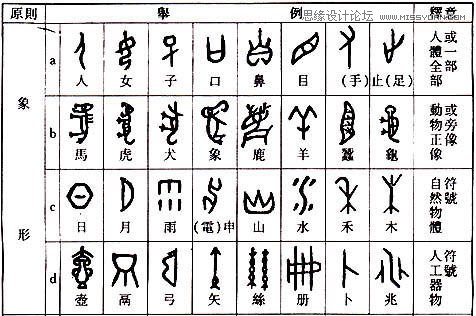 思缘设计论坛 WWW.MISSYUAN.COM
原則 舉 例 釋意
象形
a
人 女 子 口 鼻 目 (手) 止(足)
人體全部
或一部
b
馬 虎 犬 象 鹿 羊 蠶 龜
動物正像
或旁像
c
日 月 雨 (電)申 山 水 禾 木
自然物體
符號
d
壺 鬲 弓 矢 絲 册 卜 兆
人工器物
符號